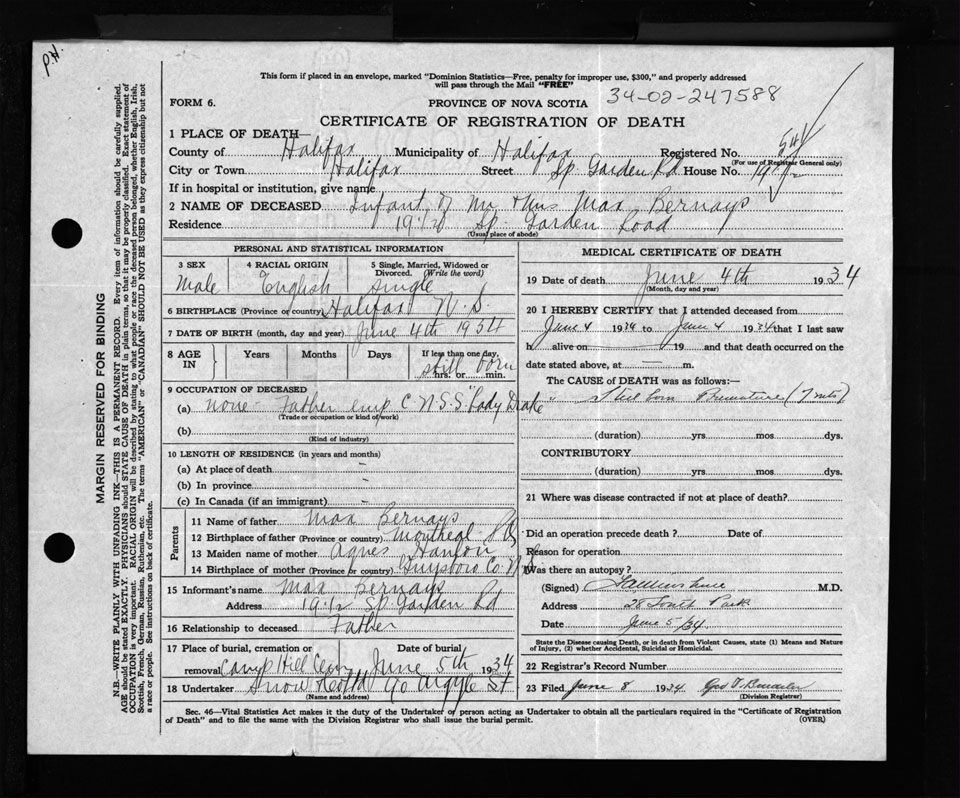 P.H.
This form if placed in an envelope, marked "Dominion Statistics—Free, penalty for improper use, $300," and properly addressed
will pass through the Mail "FREE"
FORM 6.
PROVINCE OF NOVA SCOTIA 34-02-247588
CERTIFICATE OF REGISTRATION OF DEATH
1 PLACE OF DEATH—
County of Halifax Municipality of Halifax Registered No. 
(For use of Registrar General only)
City or Town Halifax Street Sp Garden Rd House No. 19 1/2
If in hospital or institution, give name
2 NAME OF DECEASED Infant of Mr & Mrs Max Bernays
Residence 19 1/2 Sp. Garden Road
(Usual place of abode)
PERSONAL AND STATISTICAL INFORMATION
3 SEX Male
4 RACIAL ORIGIN English
5 Single, Married, Widowed or Divorced. (Write the word) Single
6 BIRTHPLACE (Province or country) Halifax N.S.
7 DATE OF BIRTH (month, day and year) June 4th 1934
8 AGE IN Years Months Days If less than one day, hrs. or min. still born
9 OCCUPATION OF DECEASED
(a) none - Father emp C N.S.S "Lady Drake"
(Trade or occupation or kind of work)
(b)
(Kind of industry)
10 LENGTH OF RESIDENCE (in years and months)
(a) At place of death -
(b) In province -
(c) In Canada (if an immigrant) -
Parents
11 Name of father Max Bernays
12 Birthplace of father (Province or country) Montreal P Q
13 Maiden name of mother Agnes Hanlon
14 Birthplace of mother (Province or country) Guysboro Co. N.S.
15 Informant's name Max Bernays
Address 19 1/2 Sp Garden Rd
16 Relationship to deceased Father
17 Place of burial, cremation or removal Camp Hill Cem Date of burial June 5th 1934
18 Undertaker Snow & Co Ltd 90 Argyle St
(Name and address)
MEDICAL CERTIFICATE OF DEATH
19 Date of death June 4th 1934
(Month, day and year)
20 I HEREBY CERTIFY that I attended deceased from
June 4 1934 to June 4 1934 that I last saw
h alive on 19 and that death occurred on the
date stated above, at m.
The CAUSE of DEATH was as follows:—
Still born Premature (7 mts)
(duration) yrs mos dys.
CONTRIBUTORY
(duration) yrs mos dys.
21 Where was disease contracted if not at place of death?
Did an operation precede death? Date of
Reason for operation
Was there an autopsy?
(Signed) M.D.
Address 28 South Park
Date June 5/34
State the Disease causing Death, or in death from Violent Causes, state (1) Means and Nature
of Injury, (2) whether Accidental, Suicidal or Homicidal.
22 Registrar's Record Number
23 Filed June 8 1934 Geo
(Division Registrar)
Sec. 46—Vital Statistics Act makes it the duty of the Undertaker or person acting as Undertaker to obtain all the particulars required in the "Certificate of Registration
of Death" and to file the same with the Division Registrar who shall issue the burial permit. (OVER)
MARGIN RESERVED FOR BINDING
N.B.—WRITE PLAINLY WITH UNFADING INK—THIS IS A PERMANENT RECORD. Every item of information should be carefully supplied.
AGE should be stated EXACTLY. PHYSICIANS should STATE CAUSE OF DEATH in plain terms, so that it may be properly classified. Exact statement of
OCCUPATION is very important. RACIAL ORIGIN will be described by stating to what people or race the deceased person belonged, whether English, Irish,
Scottish, French, German, Russian, Ruthenian, etc. The terms "AMERICAN" or "CANADIAN" SHOULD NOT BE USED as they express citizenship but not
a race or people. See instructions on back of certificate.